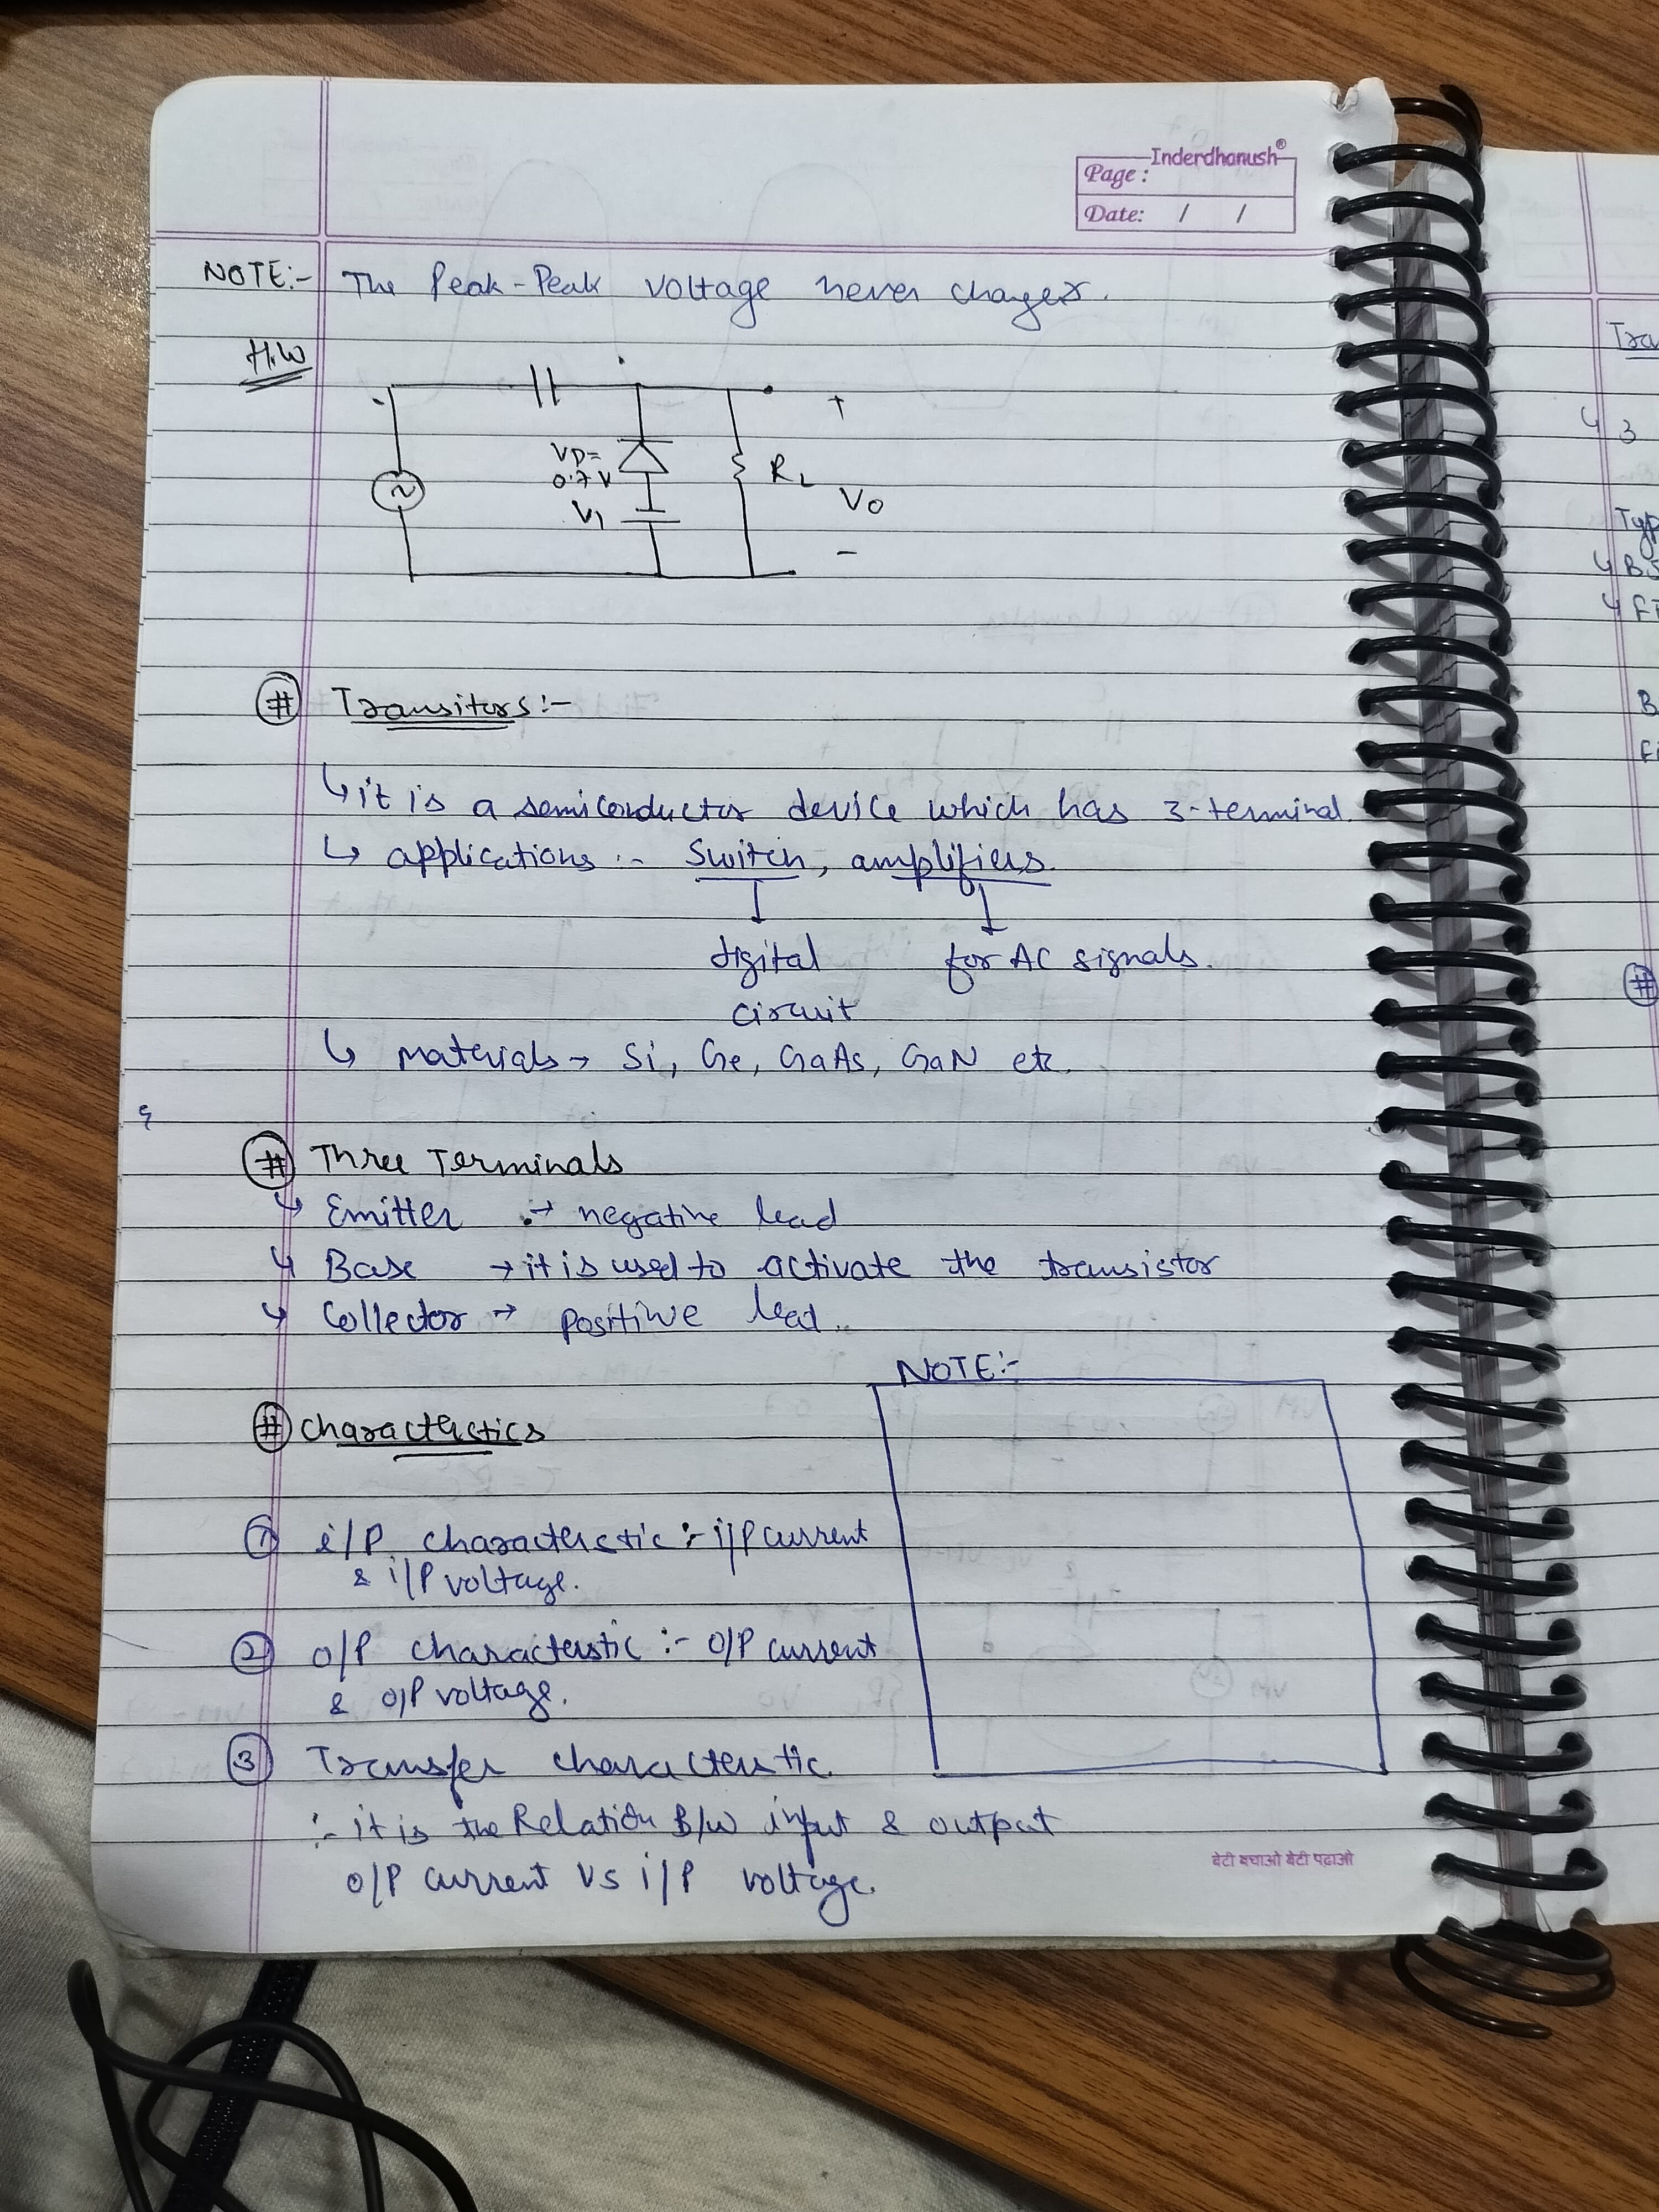 Inderdhanush®
Page :
Date: / /
NOTE:- The Peak-Peak voltage never changes.
H.W
+
VD=
0.7 V
RL
V1
Vo
-
# Transitors:-
↳ it is a semiconductor device which has 3-terminal.
↳ applications :- Switch, amplifiers.
digital for AC signals.
circuit
↳ Materials → Si, Ge, GaAs, GaN etc.
# Three Terminals
↳ Emitter → negative lead
↳ Base → it is used to activate the transistor
↳ Collector → positive lead.
NOTE:-
# Characterstics
① i/P characterstic :- i/P current
& i/P voltage.
② O/P characterstic :- O/P current
& O/P voltage.
③ Transfer characterstic.
:- it is the Relation B/w input & output
O/P current VS i/P voltage.
बेटी बचाओ बेटी पढ़ाओ
Tra
↳ 3
Typ
↳ BJ
↳ FE
B
#